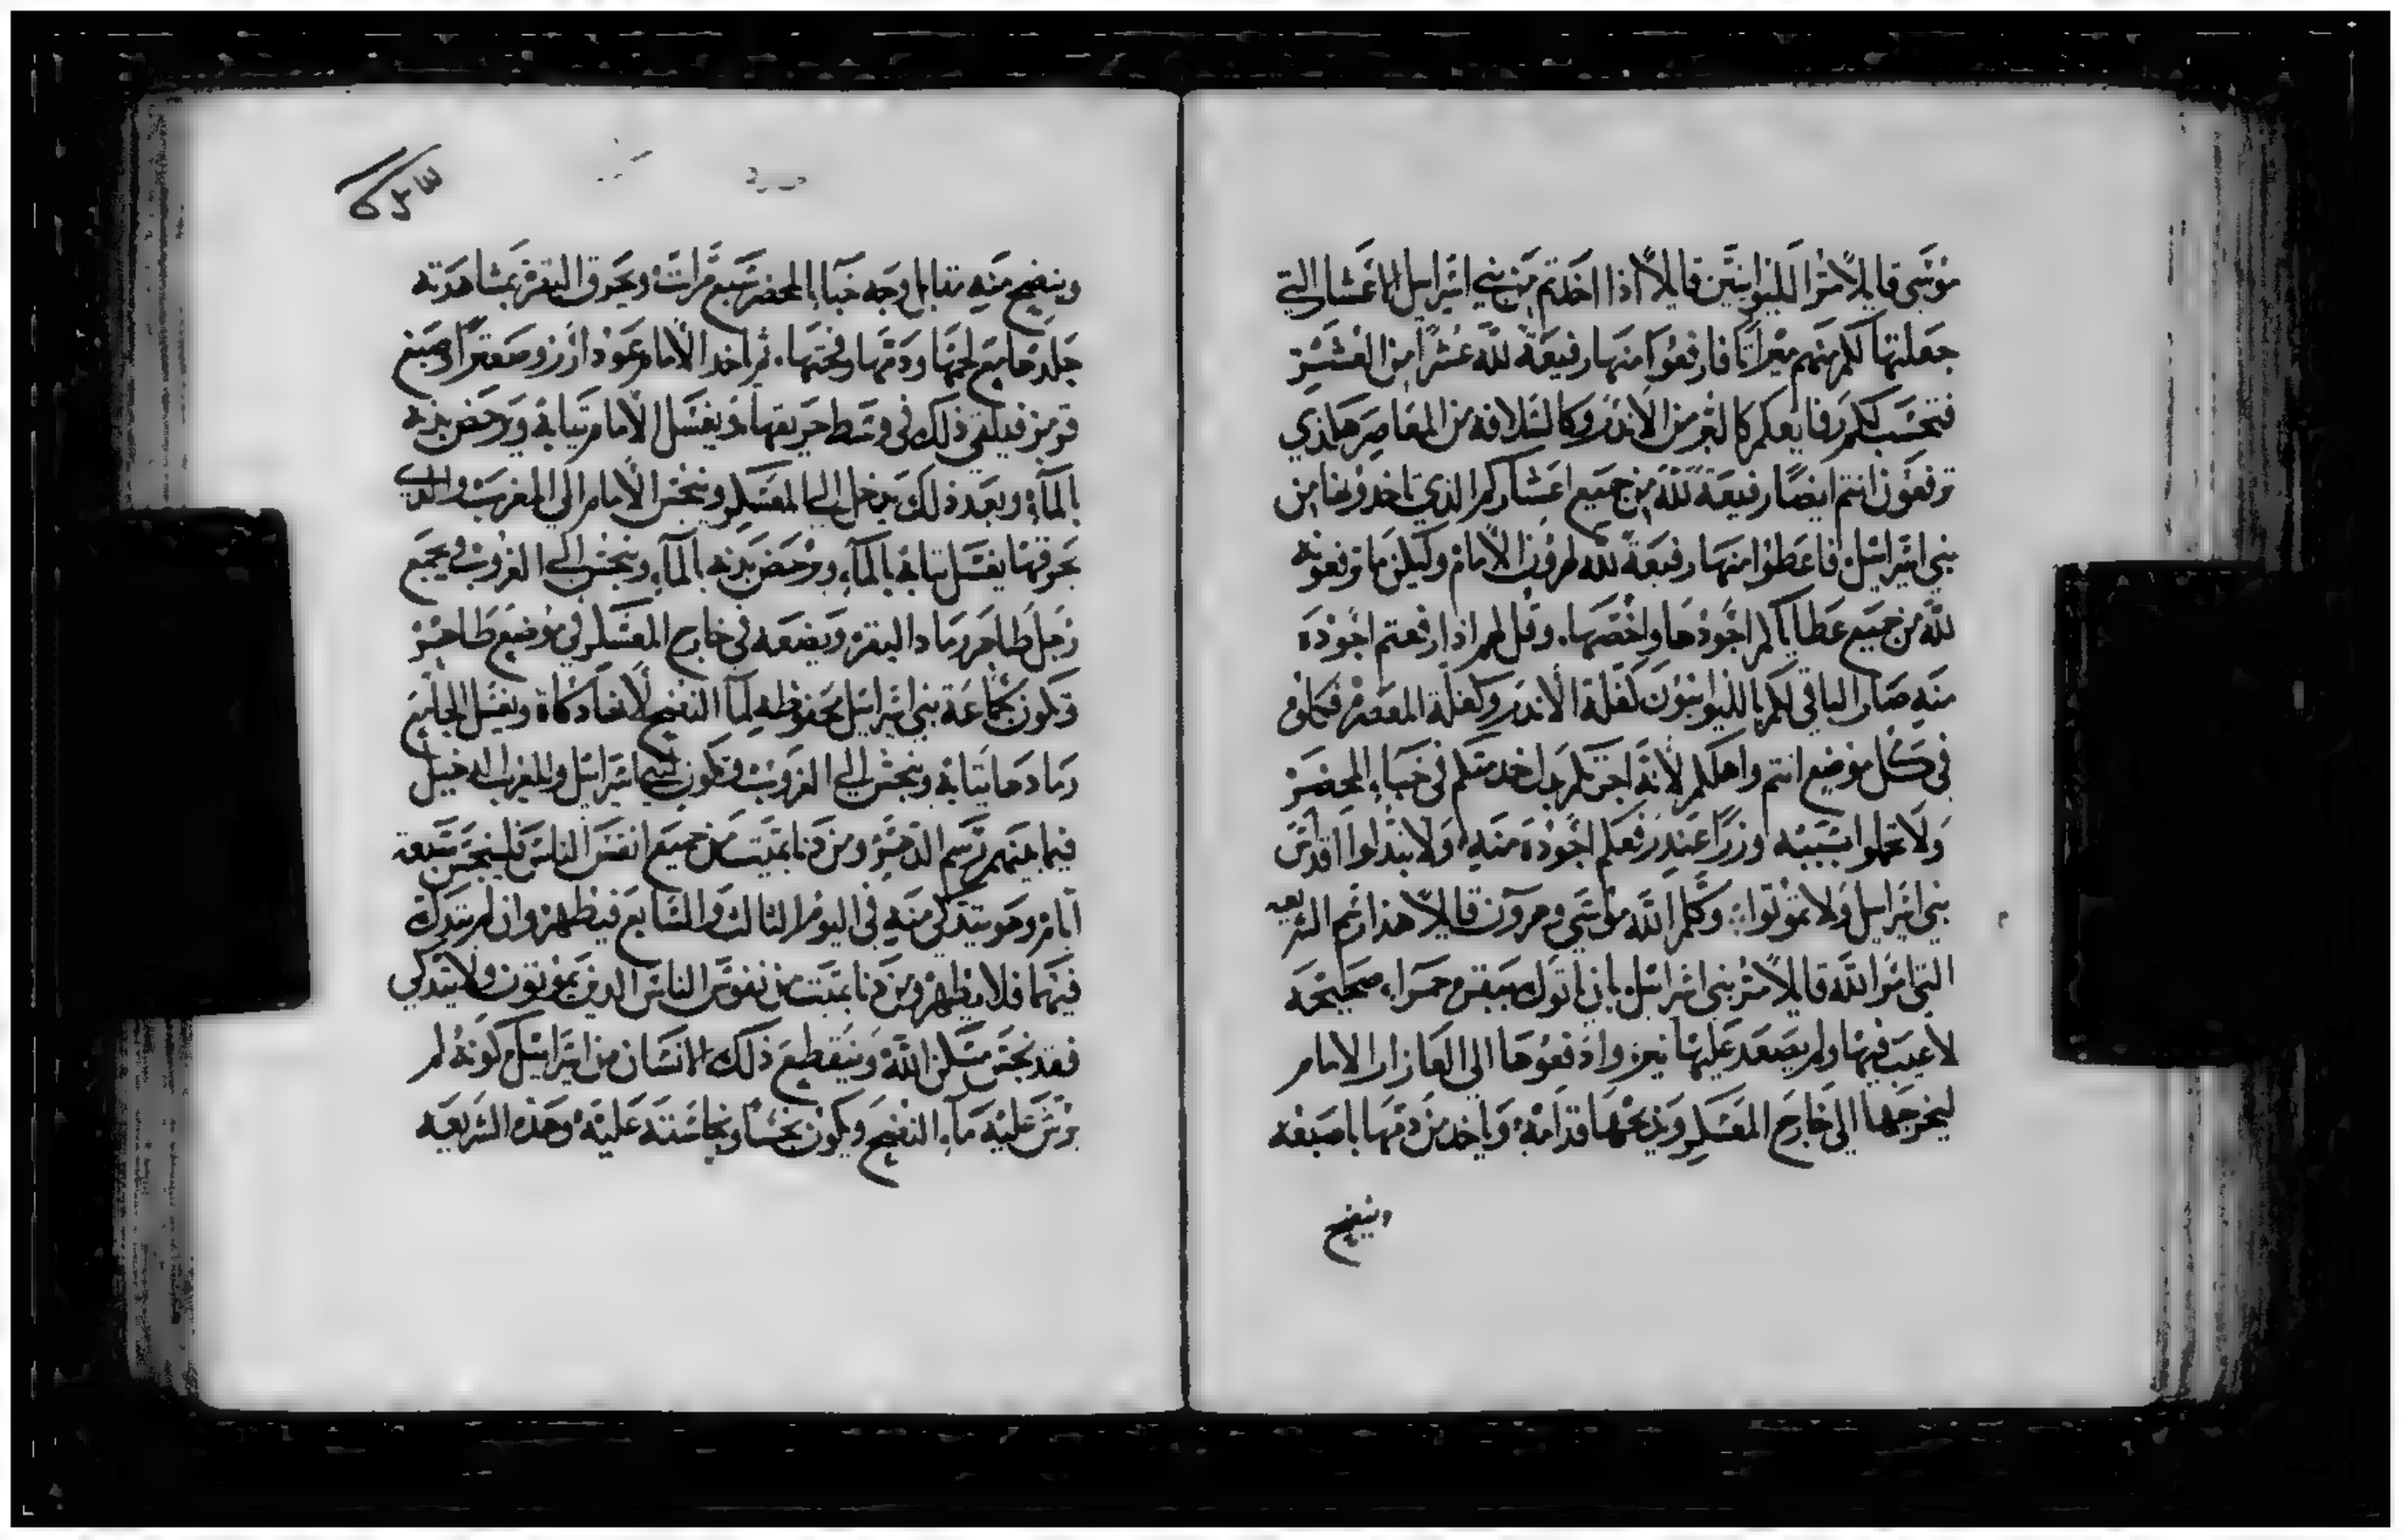 موسى قايلاً مر الليوانيين قايلاً اذا اخدتم من بني اسراييل الاعشار التي
جعلتها لكم منهم ميراثا فارفعوا منها رفيعة لله عشرًا من العشر
فتحسب لكم رفايعكم كالبر من الاندر وكالسلافه من المعاصر هاذي
ترفعون انتم ايضًا رفيعة لله من جميع اعشاركم الذي تاخدونها من
بني اسراييل فاعطوا منها رفيعة لله لهرون الامام وليكن ما ترفعونه
لله من جميع عطاياكم اجودها واخصها. وقل لهم اذا رفعتم اجوده
منه صار الباقي لكم يا الليوانيون كغلة الاندر وكغلة المعصره فكلوه
في كل موضع انتم واهلكم لانه اجرتكم بدل خدمتكم في خباء المحضر
ولا تحملوا بسببه وزرًا عند رفعكم اجوده منه ولا تبدلوا اقداس
بني اسراييل ولا تموتوا وكلم الله موسى وهرون قايلاً هذا رسم الشريعه
التي امر الله قايلاً مر بني اسراييل بان ياتوك ببقره حمراء صحيحه
لا عيب فيها ولم يصعد عليها نير وادفعوها الى العازار الامام
ليخرجها الى خارج المعسكر ويذبحها قدامه وياخد من دمها باصبعه
وينضح
وينضح منه مقابل وجه خباء المحضر سبع مرات ويحرق البقره بمشاهدته
جلدها مع لحمها ودمها وفحتها. ثم ياخد الامام عود ارز وصعترًا وصبغ
قرمز فيلقي ذلك في وسط حريقها ويغسل الامام تيابه ويرحض بدنه
بالماء وبعد ذلك يدخل الى المعسكر وينجس الامام الى المغرب والدي
يحرقها يغسل تيابه بالماء ويرحض بدنه بالماء وينجس الى الغروب ويجمع
رجل طاهر رماد البقره ويضعه في خارج المعسكر في موضع طاهر
وتكون لجماعة بني اسراييل محفوظه لماء النضح لانها دكاة ويغسل الجامع
رمادها تيابه وينجس الى الغروب وتكون لبني اسراييل وللغريب الدخيل
فيما بينهم رسم الدهر ومن دنا بميت من جميع انفس الناس فلينجس سبعة
ايام وهو يتدكى منه في اليوم التالت والسابع فيطهر وان لم يتدكى
فيهما فلا يطهر ومن دنا بميت من نفوس الناس الدين يموتون ولا يتدكي
فقد نجس مسكن الله وينقطع ذلك الانسان من اسراييل كونه لم
يرش عليه ماء النضح ويكون نجسًا ونجاسته عليه وهذه الشريعه